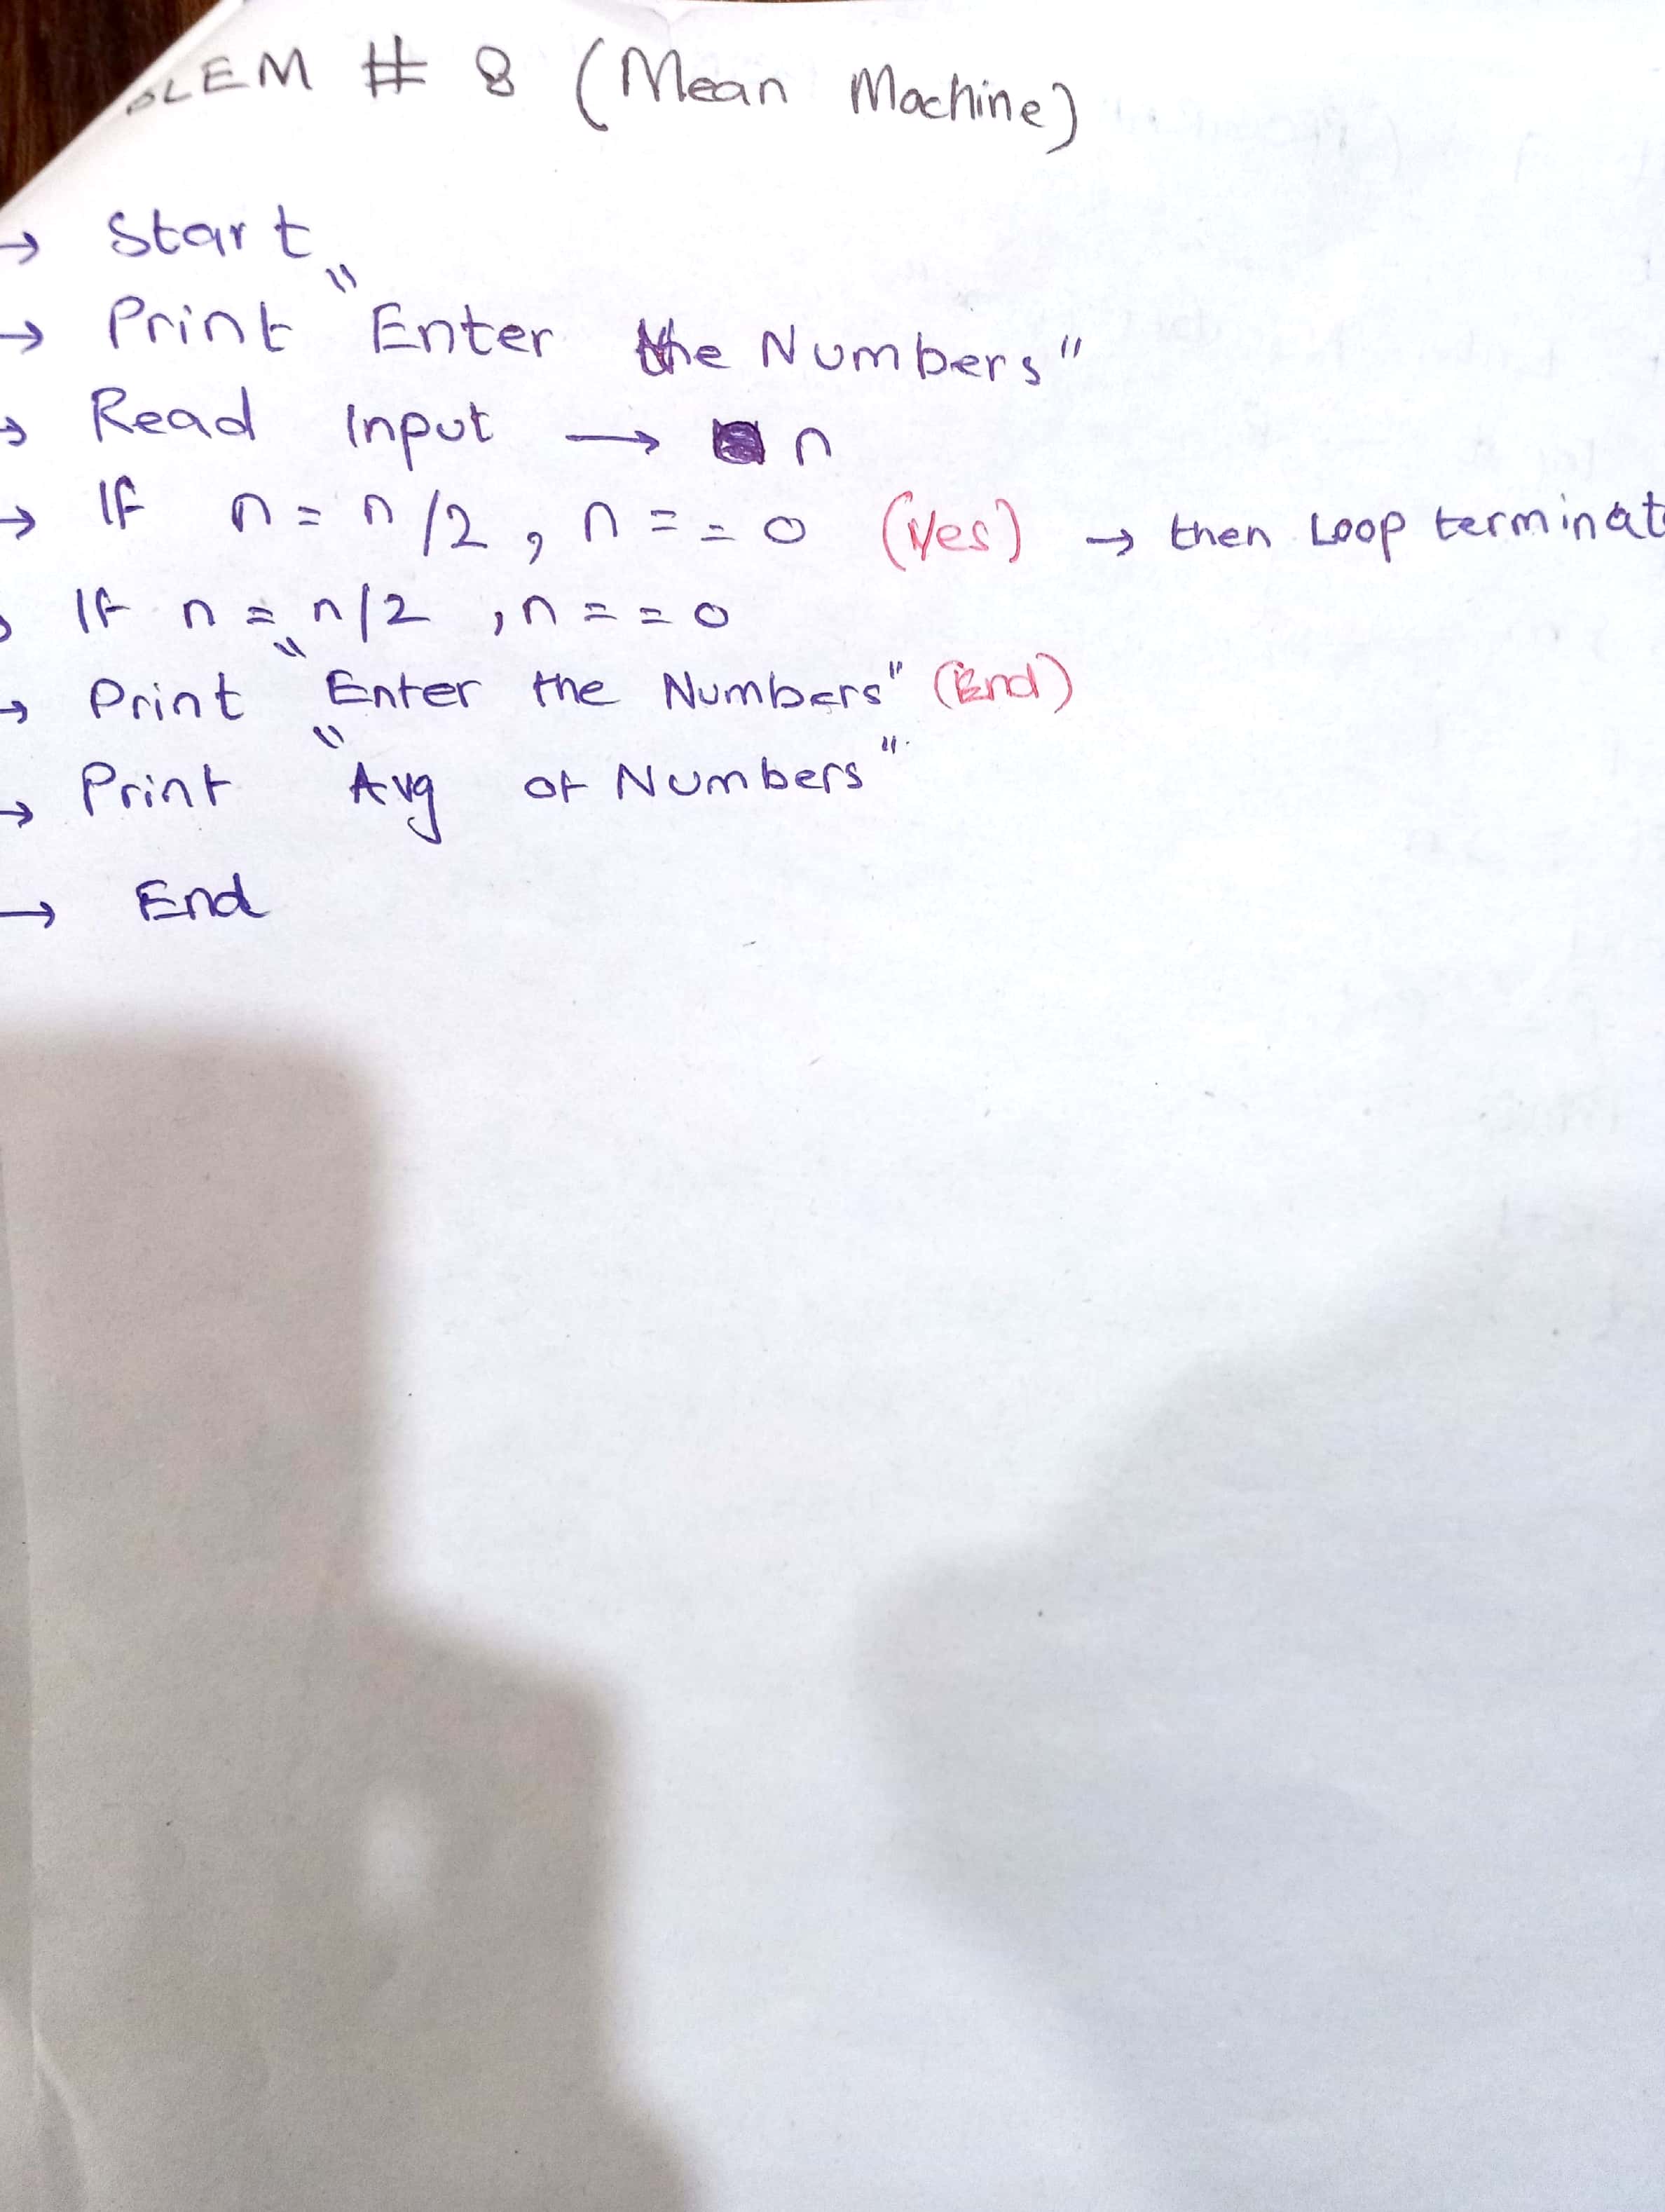 LEM # 8 (Mean Machine)
→ Start
→ Print "Enter the Numbers"
→ Read Input → n
→ If n = n/2 , n == 0 (Yes) → then Loop terminat
→ If n = n/2 , n == 0
→ Print "Enter the Numbers" (End)
→ Print "Avg of Numbers"
→ End